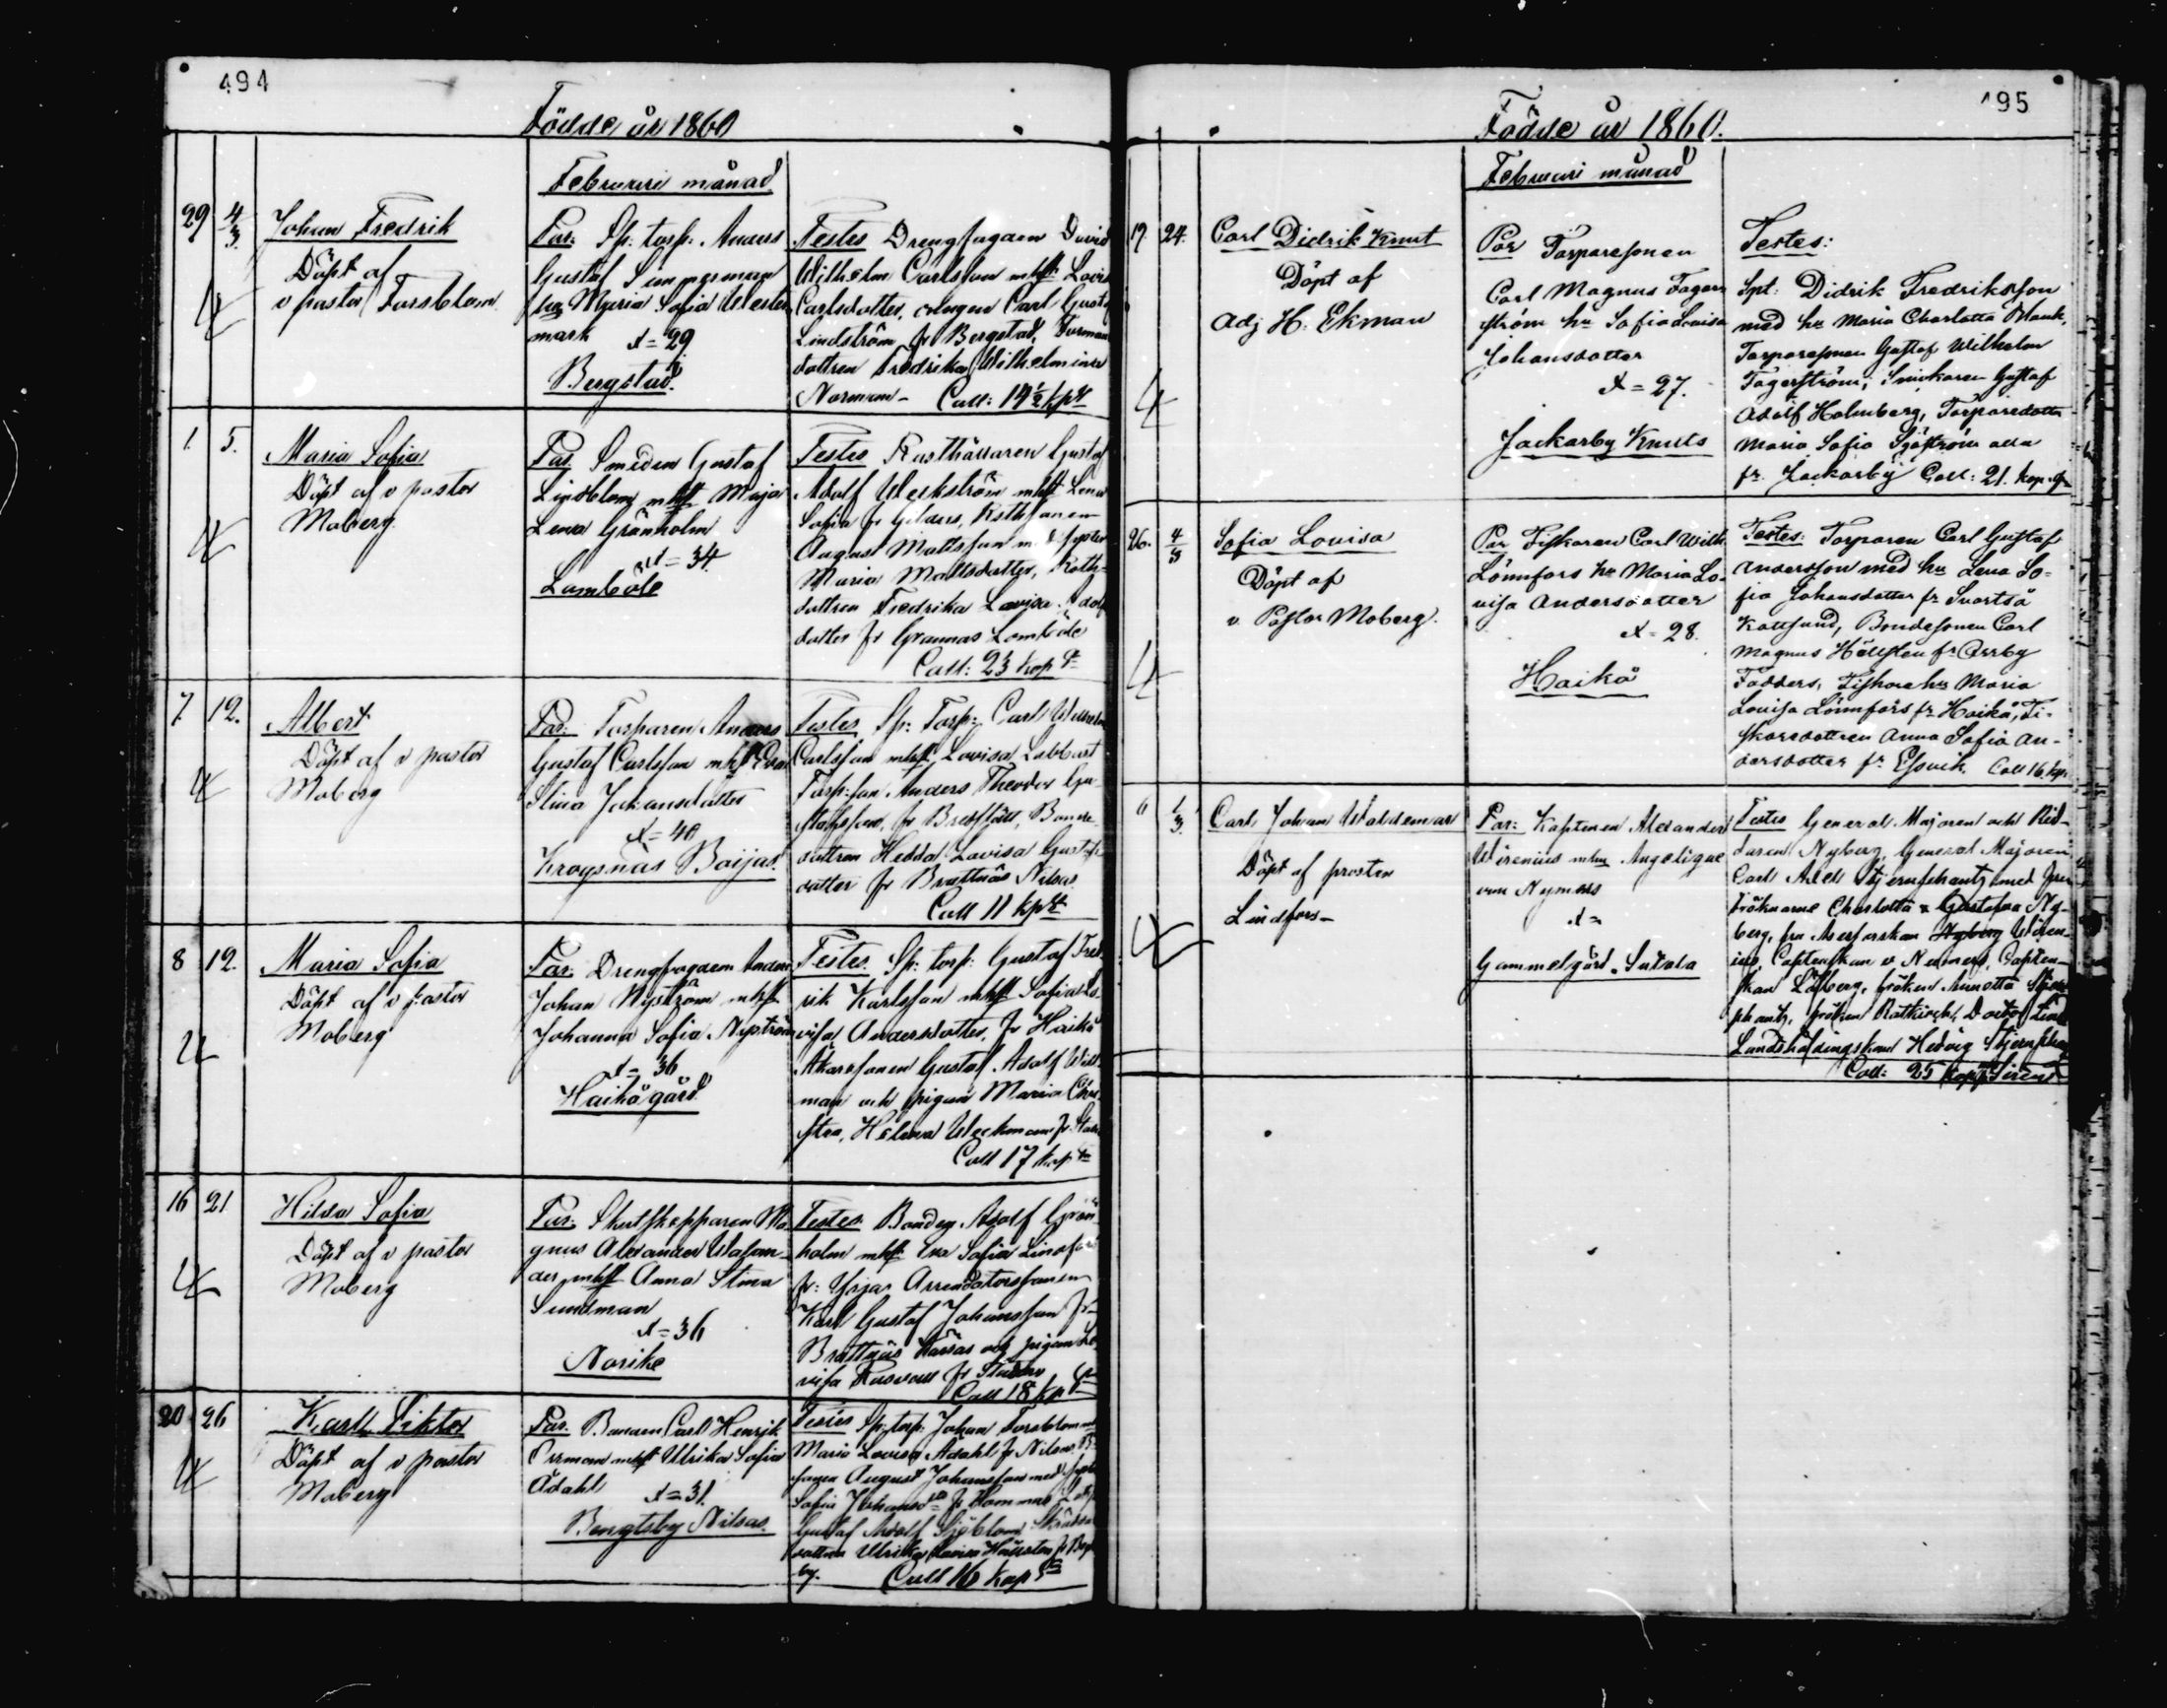 494
Födde år 1860
Februari månad
29 4/3 Johan Fredrik
Döpt af
v pastor Forsblom
Par: Sp: torp: Anders
Gustaf Simmerman
hu Maria Sofia Wester
mark x=29
Bergstad
Testes Drengfogden David
Wilhelm Carlsson mhst Lovisa
Carlsdotter, Carl Gustaf
Lindström fr Bergstad,
dottren Fredrika Wilhelmina
Norman - Coll: 19½ kp
1. 5. Maria Sofia
Döpt af v pastor
Moberg
Par Smeden Gustaf
Lindblom mhst Maja
Lena Grönholm
x=34
Lambole
Testes Rusthållaren Gustaf
Adolf Weckström mhst Lena
Sofia fr Gilders,
August Mattsson m syster
Maria Mattsdotter,
dottren Fredrika Lovisa Adolfs
dotter fr Grannas Lambole
Coll: 23 kop
7. 12. Albert
Döpt af v pastor
Moberg
Par: Torparen Anders
Gustaf Carlsson mhst Eva
Stina Johansdotter
x=40
Krogsnäs Böijas
Testes Sp: Torp: Carl Wilhelm
Carlsson mhst Lovisa Labbart
Torp:son Anders Theodor Gu-
stafsson, fr Bredfjäll, Bonde
dottren Hedda Lovisa Gustafs
dotter fr Brattnäs Nilsas
Coll 11 kp
8 12. Maria Sofia
Döpt af v pastor
Moberg
Par: Drengfogden Anders
Johan Nyström mhst
Johanna Sofia Nyström
x=36
Haikågård
Testes. Sp: torp: Gustaf Fred
rik Karlsson mhst Sofia Lo
visa Andersdotter, fr Haikå
Gustaf Adolf Wid
man och pigan Maria Chri
stra, Helena Weckman fr
Coll 17 kop
16 21 Hilda Sofia
Döpt af v pastor
Moberg
Par: Skutskepparen Ma
gnus Alexander Walan
der mhst Anna Stina
Sundman
x=36
Norike
Testes. Bonden Adolf Grön
holm mhst Eva Sofia Lindfors
fr: Arrendatorssonen
Karl Gustaf Johansson fr
Brattnäs Kassas och pigan Lo
visa fr
Coll 18 kp
20 26 Karl Viktor
Döpt af v pastor
Moberg
Par. Bonden Carl Henrik
Örnman mhst Ulrika Sofia
Ådahl x=31.
Bengtsby Nilsas.
Testes Sp: torp: Johan Forsblom m
Maria Lovisa Ådahl fr Nilsas B
sonen August Johansson med syster
Sofia Johansd fr Hommas
Gustaf Adolf Sjöblom
dottren Ulrika Lovisa Hällsten fr Bengts
by. Coll 16 kop
195
Födde år 1860.
Februari månad
19 24. Carl Didrik Knut
Döpt af
Adj H. Ekman
Par Torparesonen
Carl Magnus Fager
ström hu Sofia Lovisa
Johansdotter
x=27.
Jackarby Knuts
Testes:
Spt: Didrik Fredriksson
med hu Maria Charlotta Blank,
Torparesonen Gustaf Wilhelm
Fagerström, Snickaren Gustaf
Adolf Holmberg, Torparedotter
Maria Sofia Sjöström alla
fr. Jackarby Coll: 21. kop. Sr
26. 4/3 Sofia Lovisa
Döpt af
v. Pastor Moberg.
Par Fiskaren Carl Wilh.
Lönnfors hu Maria Lo-
visa Andersdotter
x=28.
Haikå
Testes: Torparen Carl Gustaf
Andersson med hu Lena So-
fia Johansdotter fr Svartså
Kattsund, Bondesonen Carl
Magnus Hällsten fr Orrby
Fadders, Fiskare hu Maria
Lovisa Lönnfors fr Haikå, Fi-
skaredottren Anna Sofia An-
dersdotter fr Essvik. Coll 16 kp
6 1/3 Carl Johan Waldemar
Döpt af prosten
Lindfors-
Par: Kaptenen Alexander
Wirenius mhu Angelique
von Nymers
x=
Gammelgård. Sukola
Testes General Majoren och Rid-
daren Nyberg, General Majoren
Carl Axel Stjernschantz med
fröknarne Charlotta & Gustafva Ny-
berg, fru Assessorskan Nyberg Wiren-
ius, Captenskan v Nymers, Capten-
skan Löfberg, fröken Annette Stjern
schantz, fröken Rotkirch, Doctor
Landshöfdingskan Hedvig Stjernschantz
Coll: 25 kop Silfver